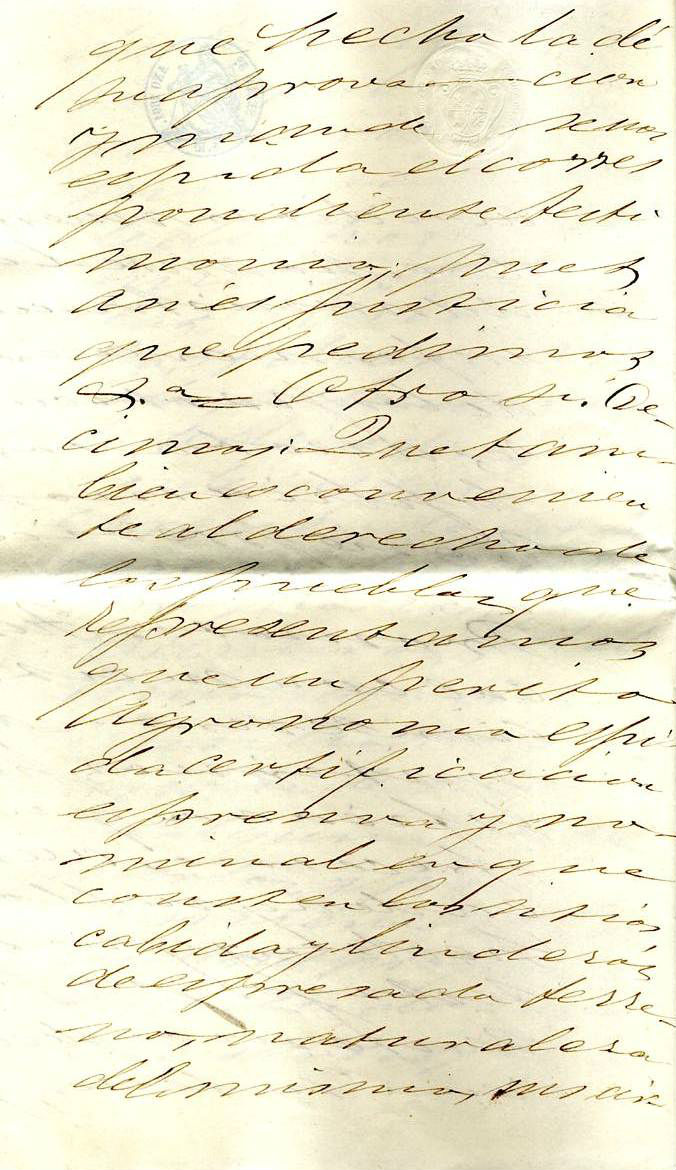 que hecho la dé
su aprova cion
y mande se nos
espida el corres
pondiente testi
monio; pues
asi es justicia
que pedimos
&.ª = Otro si. De-
cimos: Que tam-
bien es convenien
te al derecho de
los pueblos que
representamos
que un perito
Agronomo espi-
da certificacion
espresiva y no-
minal en que
consten los sitios
cabida y linderos
de espresado terre-
no, naturaleza
del mismo, sus ar-